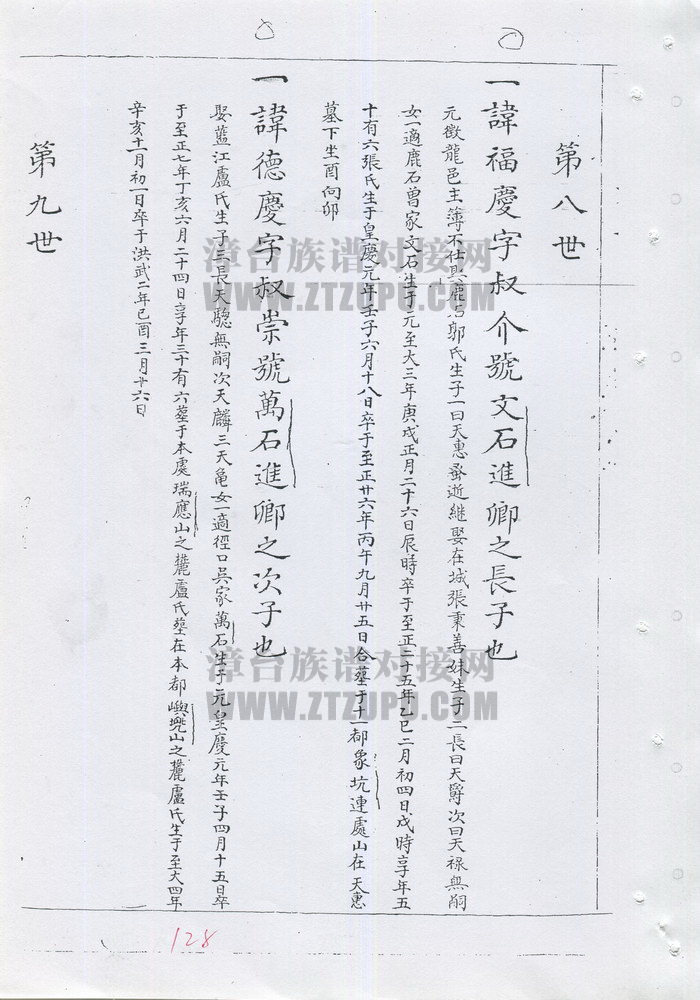 第八世
一諱福慶字叔介號文石進卿之長子也
元徵龍邑主簿不仕娶鹿石鄭氏生子一曰天惠蚤逝継娶在城張秉善妹生子二長曰天爵次曰天祿無嗣
女一適鹿石曾家文石生于元至大三年庚戍正月二十六日辰時卒于至正二十五年乙巳二月初四日戍時享年五
十有六張氏生于皇慶元年壬子六月十八日卒于至正廿六年丙午九月廿五日合塟于十一都象坑連處山在天惠
墓下坐酉向卯
一諱德慶字叔崇號萬石進卿之次子也
娶藍江盧氏生子三長天驄無嗣次天麟三天亀女一適徑口吳家萬石生于元皇慶元年壬子四月十五日卒
于至正七年丁亥六月二十四日享年三十有六塟于本處瑞應山之麓盧氏塟在本都嶼兠山之麓盧氏生于至大四年
辛亥十一月初一日卒于洪武二年己酉三月廿六日
第九世
128
漳台族谱对接网
WWW.ZTZUPU.COM
漳台族谱对接网
WWW.ZTZUPU.COM